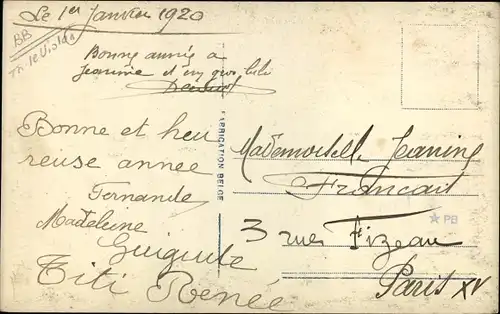 Le 1er Janvier 1920
BB
Bonne année a
Jeanine et un gros bébé
Bonne et heu
reuse annee
Fernande
Madeleine
Guiguite
Titi Renée
FABRICATION BELGE
Mademoiselle Jeanine
Francait
3 rue Fizeau
Paris XV
PB